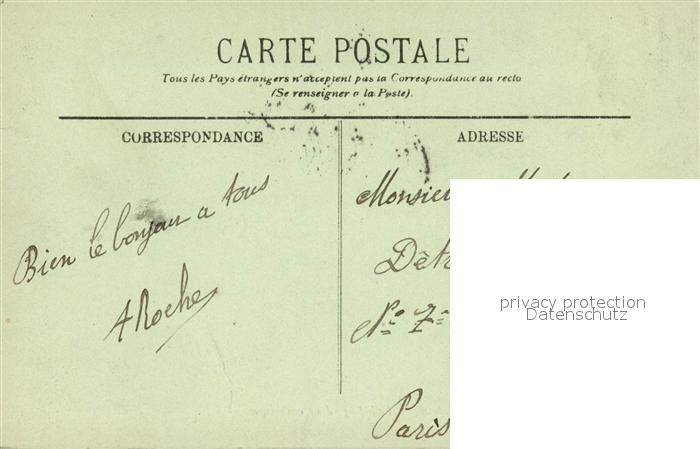 CARTE POSTALE
Tous les Pays étrangers n'acceptent pas la Correspondance au recto
(Se renseigner a la Poste).
CORRESPONDANCE
Bien le bonjour a tous
A Roche
ADRESSE
Monsieur
N° 7
Paris
privacy protection
Datenschutz